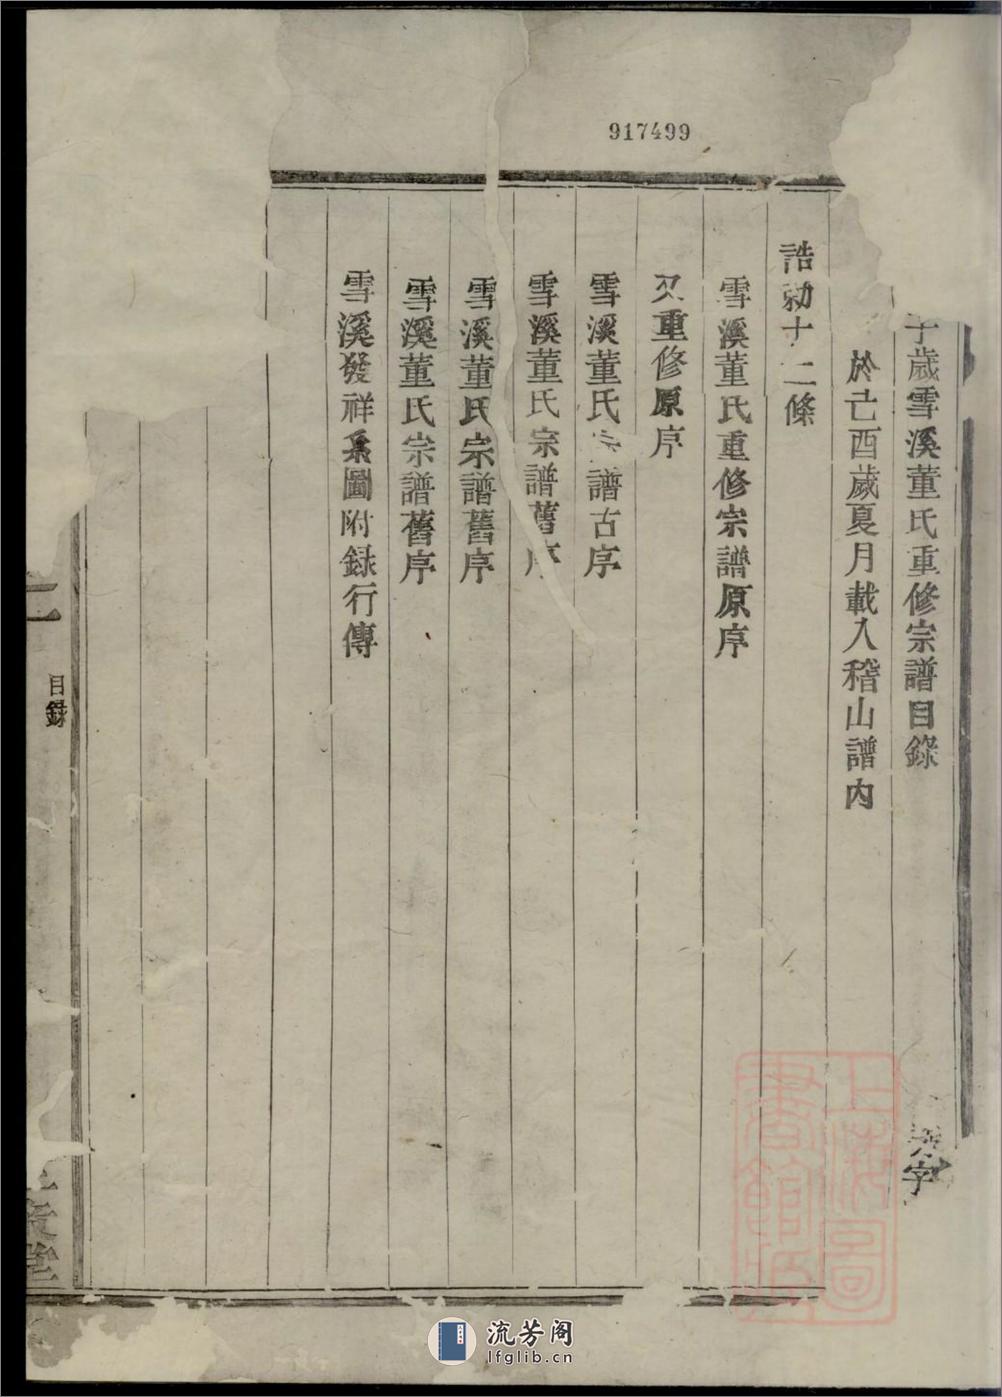 917499
歲雪溪董氏重修宗譜目錄
於己酉歲夏月載入稽山譜內
誥勅十二條
雪溪董氏重修宗譜原序
又重修原序
雪溪董氏宗譜古序
雪溪董氏宗譜舊序
雪溪董氏宗譜舊序
雪溪董氏宗譜舊序
雪溪發祥系圖附録行傳
目録
堂
上海圖書館藏
流芳阁
lfglib.cn